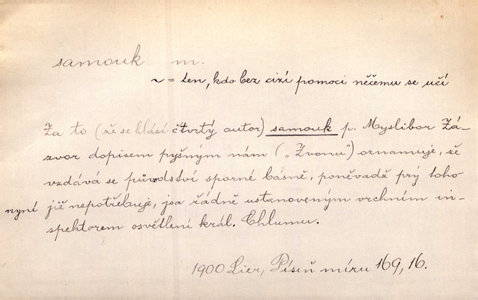 samouk m.
~ = ten, kdo bez cizí pomoci něčemu se učí
Za to (že se hlásí čtvrtý autor) samouk p. Myslibor Zá-
zvor dopisem pyšným nám („Zvonu“) oznamuje, že
vzdává se původství sporné básně, poněvadž prý toho
nyní již nepotřebuje, jsa řádně ustanoveným vrchním in-
spektorem osvětlení král. Chlumu.
1900 Lier, Píseň míru 169, 16.